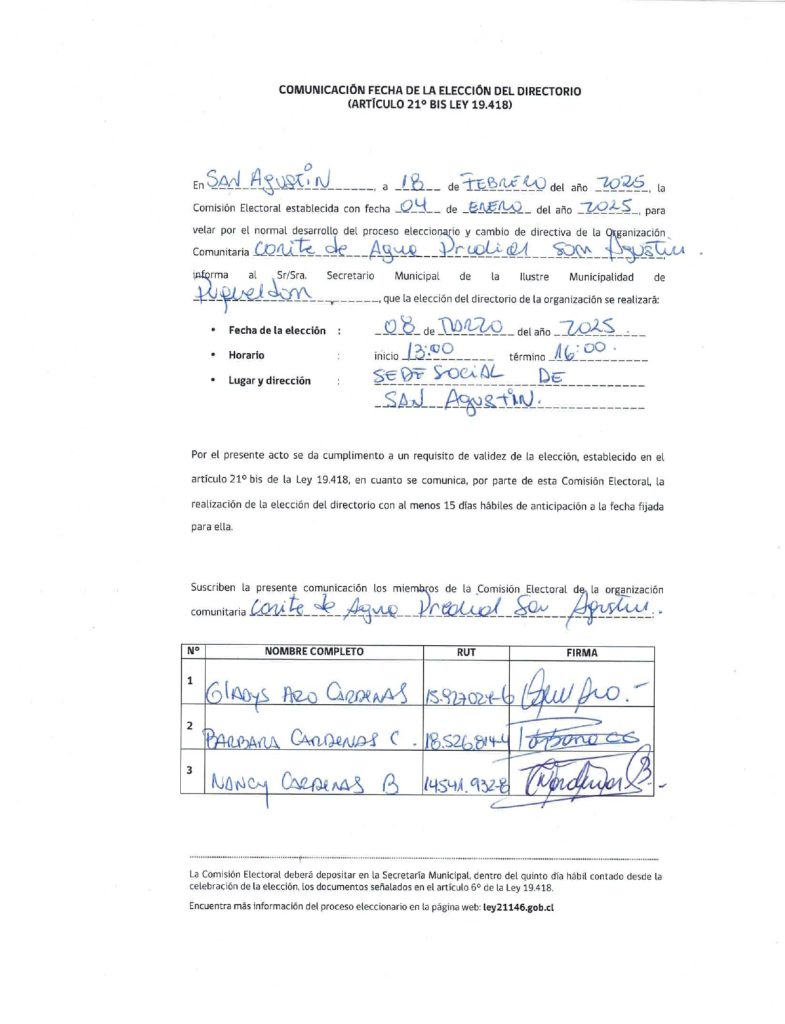 COMUNICACIÓN FECHA DE LA ELECCIÓN DEL DIRECTORIO
(ARTÍCULO 21º BIS LEY 19.418)
En SAN AgustíN, a 18 de FEBRERO del año 2025, la
Comisión Electoral establecida con fecha 04 de ENERO del año 2025, para
velar por el normal desarrollo del proceso eleccionario y cambio de directiva de la Organización
Comunitaria Comite de Agua Predial San Agustin.
informa al Sr/Sra. Secretario Municipal de la Ilustre Municipalidad de
Puqueldon, que la elección del directorio de la organización se realizará:
• Fecha de la elección : 08 de MARZO del año 2025.
• Horario : inicio 13:00 término 16:00.
• Lugar y dirección : SEDE SOCIAL DE
SAN AgustIN.
Por el presente acto se da cumplimento a un requisito de validez de la elección, establecido en el
artículo 21º bis de la Ley 19.418, en cuanto se comunica, por parte de esta Comisión Electoral, la
realización de la elección del directorio con al menos 15 días hábiles de anticipación a la fecha fijada
para ella.
Suscriben la presente comunicación los miembros de la Comisión Electoral de la organización
comunitaria Comite de Agua Predial San Agustin.
Nº NOMBRE COMPLETO RUT FIRMA
1 GlADYS ARO CARDENAS 15.927024-6
2 BARBARA CARDENAS C. 18.526.814-4
3 NANCY CARDENAS B 14541.932-8
La Comisión Electoral deberá depositar en la Secretaría Municipal, dentro del quinto día hábil contado desde la
celebración de la elección, los documentos señalados en el artículo 6º de la Ley 19.418.
Encuentra más información del proceso eleccionario en la página web: ley21146.gob.cl